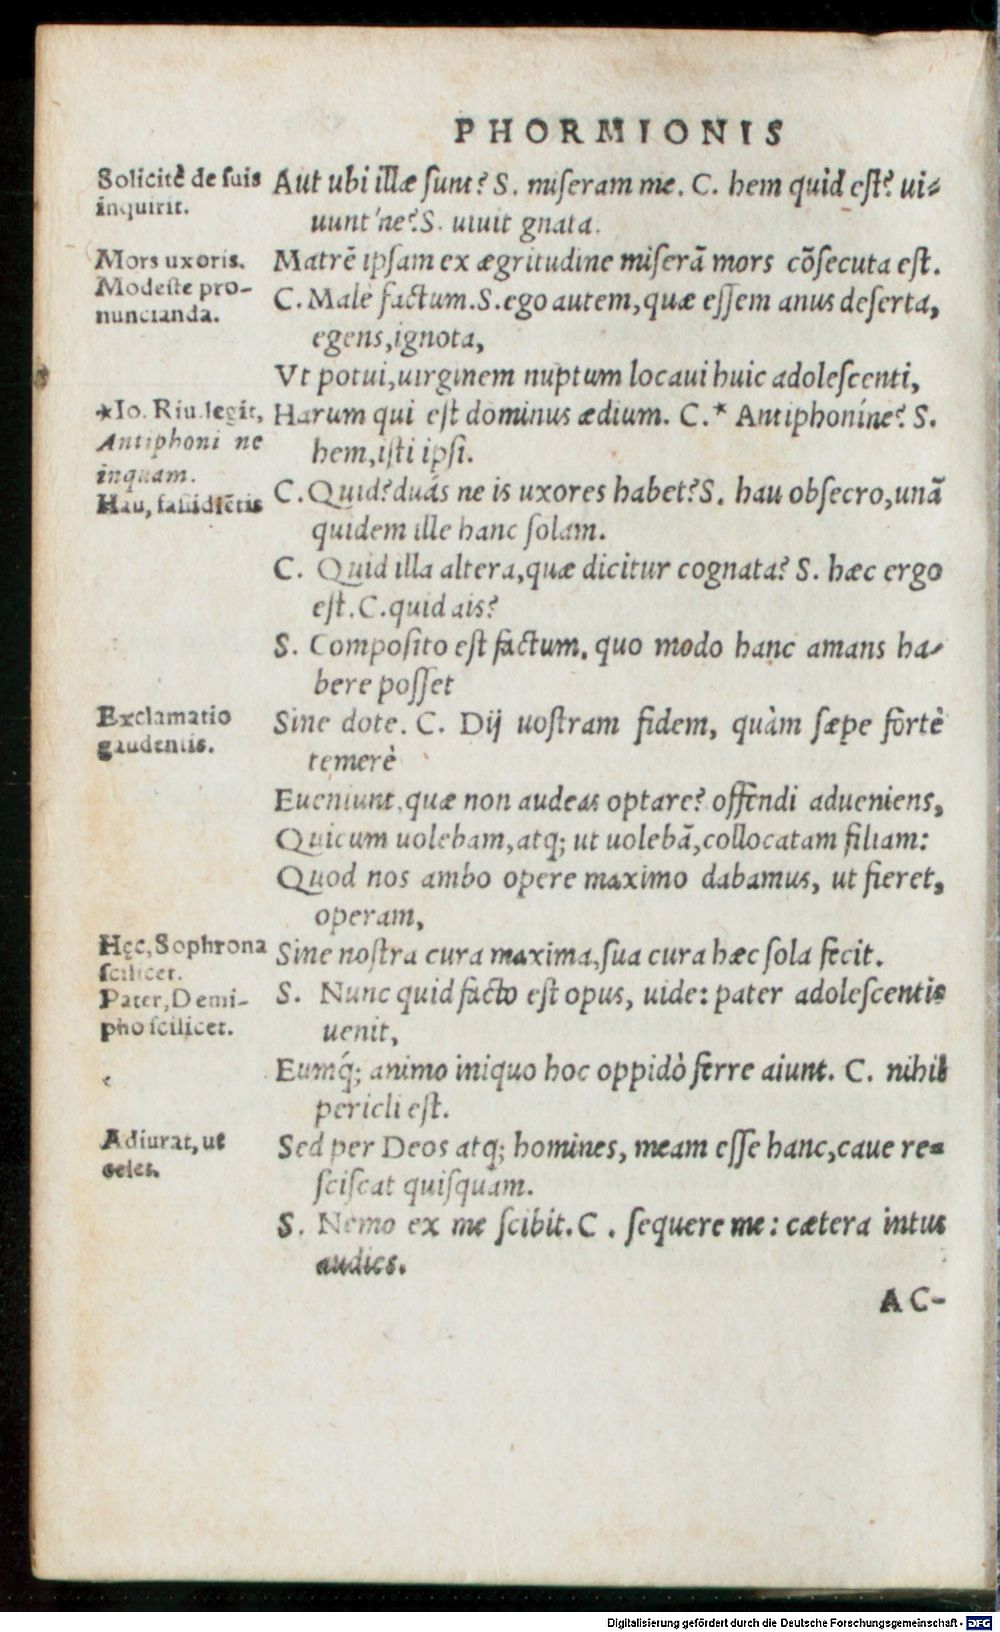 PHORMIONIS
Solicitè de suis
inquirit.
Aut ubi illæ sunt? S. miseram me. C. hem quid est? ui-
uunt'ne? S. uiuit gnata.
Mors uxoris.
Matrē ipsam ex ægritudine miserā mors cōsecuta est.
Modeste pro-
nuncianda.
C. Malè factum. S. ego autem, quæ essem anus deserta,
egens, ignota,
Vt potui, uirginem nuptum locaui huic adolescenti,
*Io. Riu. legit,
Antiphoni ne
inquam.
Harum qui est dominus ædium. C.* Antiphoníne? S.
hem, isti ipsi.
Hau, fastidiētis
C. Quid? duás ne is uxores habet? S. hau obsecro, unā
quidem ille hanc solam.
C. Quid illa altera, quæ dicitur cognata? S. hæc ergo
est. C. quid ais?
S. Composito est factum, quo modo hanc amans ha-
bere posset
Exclamatio
gaudentis.
Sine dote. C. Dij uostram fidem, quàm sæpe fortè
temerè
Eueniunt, quæ non audeas optare? offendi adueniens,
Quicum uolebam, atq; ut uolebā, collocatam filiam:
Quod nos ambo opere maximo dabamus, ut fieret,
operam,
Hęc, Sophrona
scilicet.
Sine nostra cura maxima, sua cura hæc sola fecit.
Pater, Demi-
pho scilicet.
S. Nunc quid facto est opus, uide: pater adolescentis
uenit,
Eumq́; animo iniquo hoc oppidò ferre aiunt. C. nihil
pericli est.
Adiurat, ut
celes.
Sed per Deos atq; homines, meam esse hanc, caue re-
sciscat quisquam.
S. Nemo ex me scibit. C. sequere me: cætera intus
audies.
AC-
Digitalisierung gefördert durch die Deutsche Forschungsgemeinschaft - DFG